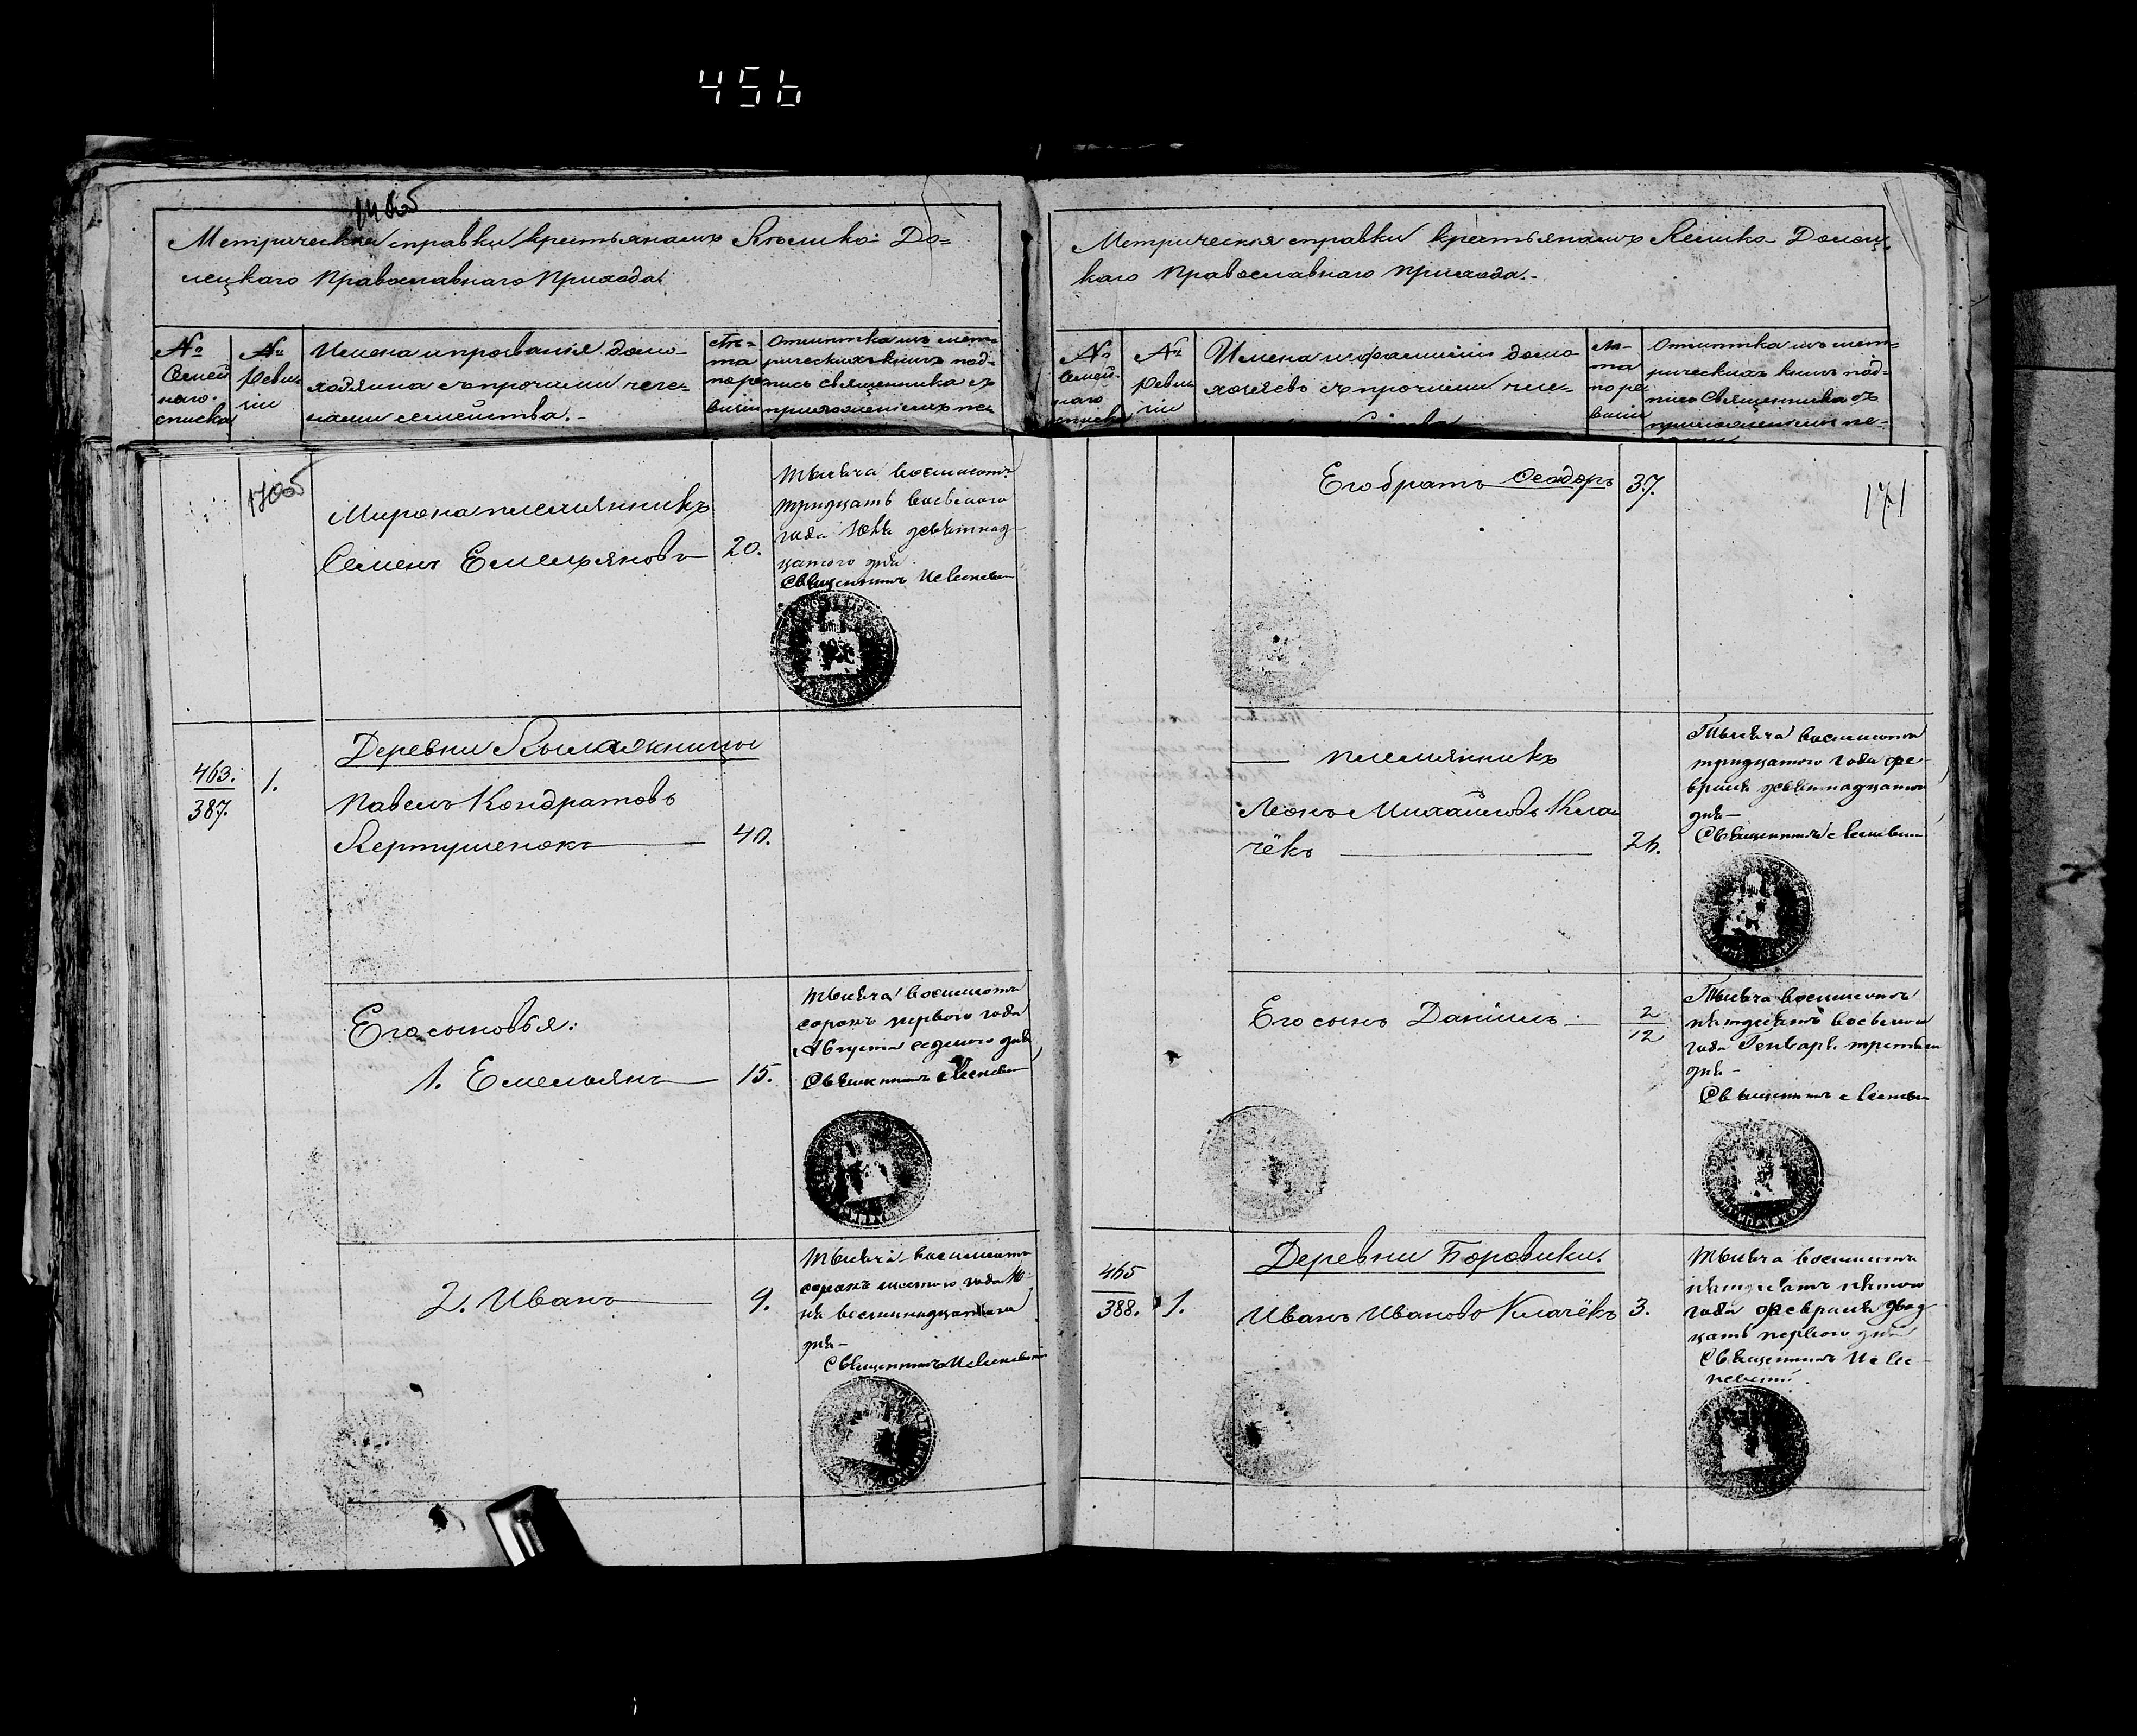 456
Метрическія справки крестьянамъ Велико-До=
лецкаго Православнаго Прихода.
№
Семей
наго
списка
№
Реви-
зіи
Имена и прозванія домо-
хозяина съ прочими чле-
нами семейства.-
Лѣ-
та
по ре
визіи
Отмѣтка изъ мет-
рическихъ книгъ под-
пись священника съ
приложеніемъ пе-
170об
Мирона племянникъ
Семенъ Емельяновъ
20.
Тысяча восемьсотъ
тридцать восьмого
года Юля девятнад-
цатого дня.
Священникъ
463.
387.
1.
Деревни
Павелъ Кондратовъ
Вертушенокъ
40.
Его сыновья:
1. Емельянъ
15.
Тысяча восемьсотъ
сорокъ первого года
Августа седмого дня
Священникъ
2. Иванъ
9.
Тысяча восемьсотъ
сорокъ шестого года Ю-
ня восемнадцатого
дня-
Священникъ
Метрическія справки крестьянамъ Велико-Долец-
каго Православнаго прихода.-
№
Семей-
наго
списка
№
Реви
зіи
Имена и фамиліи домо
хозяевъ съ прочими чле-
Лѣ-
та
по ре
визіи
Отмѣтка изъ мет-
рическихъ книгъ под-
пись Священника съ
приложеніемъ пе-
171
Его братъ Ѳеодоръ
37.
— племянникъ
Леонъ Михайловъ Кла
чёкъ
26.
Тысяча восемьсотъ
тридцатого года фе-
враля девятнадцатого
дня-
Священникъ
Его сынъ Даніилъ
2
12
Тысяча восемьсотъ
пятдесятъ восьмого
года Генваря третьяго
дня-
Священникъ
465
388.
1.
Деревни Боровики.
Иванъ Ивановъ Клачёкъ
3.
Тысяча восемьсотъ
пятдесятъ пятого
года февраля двад-
цать первого дня
Священникъ